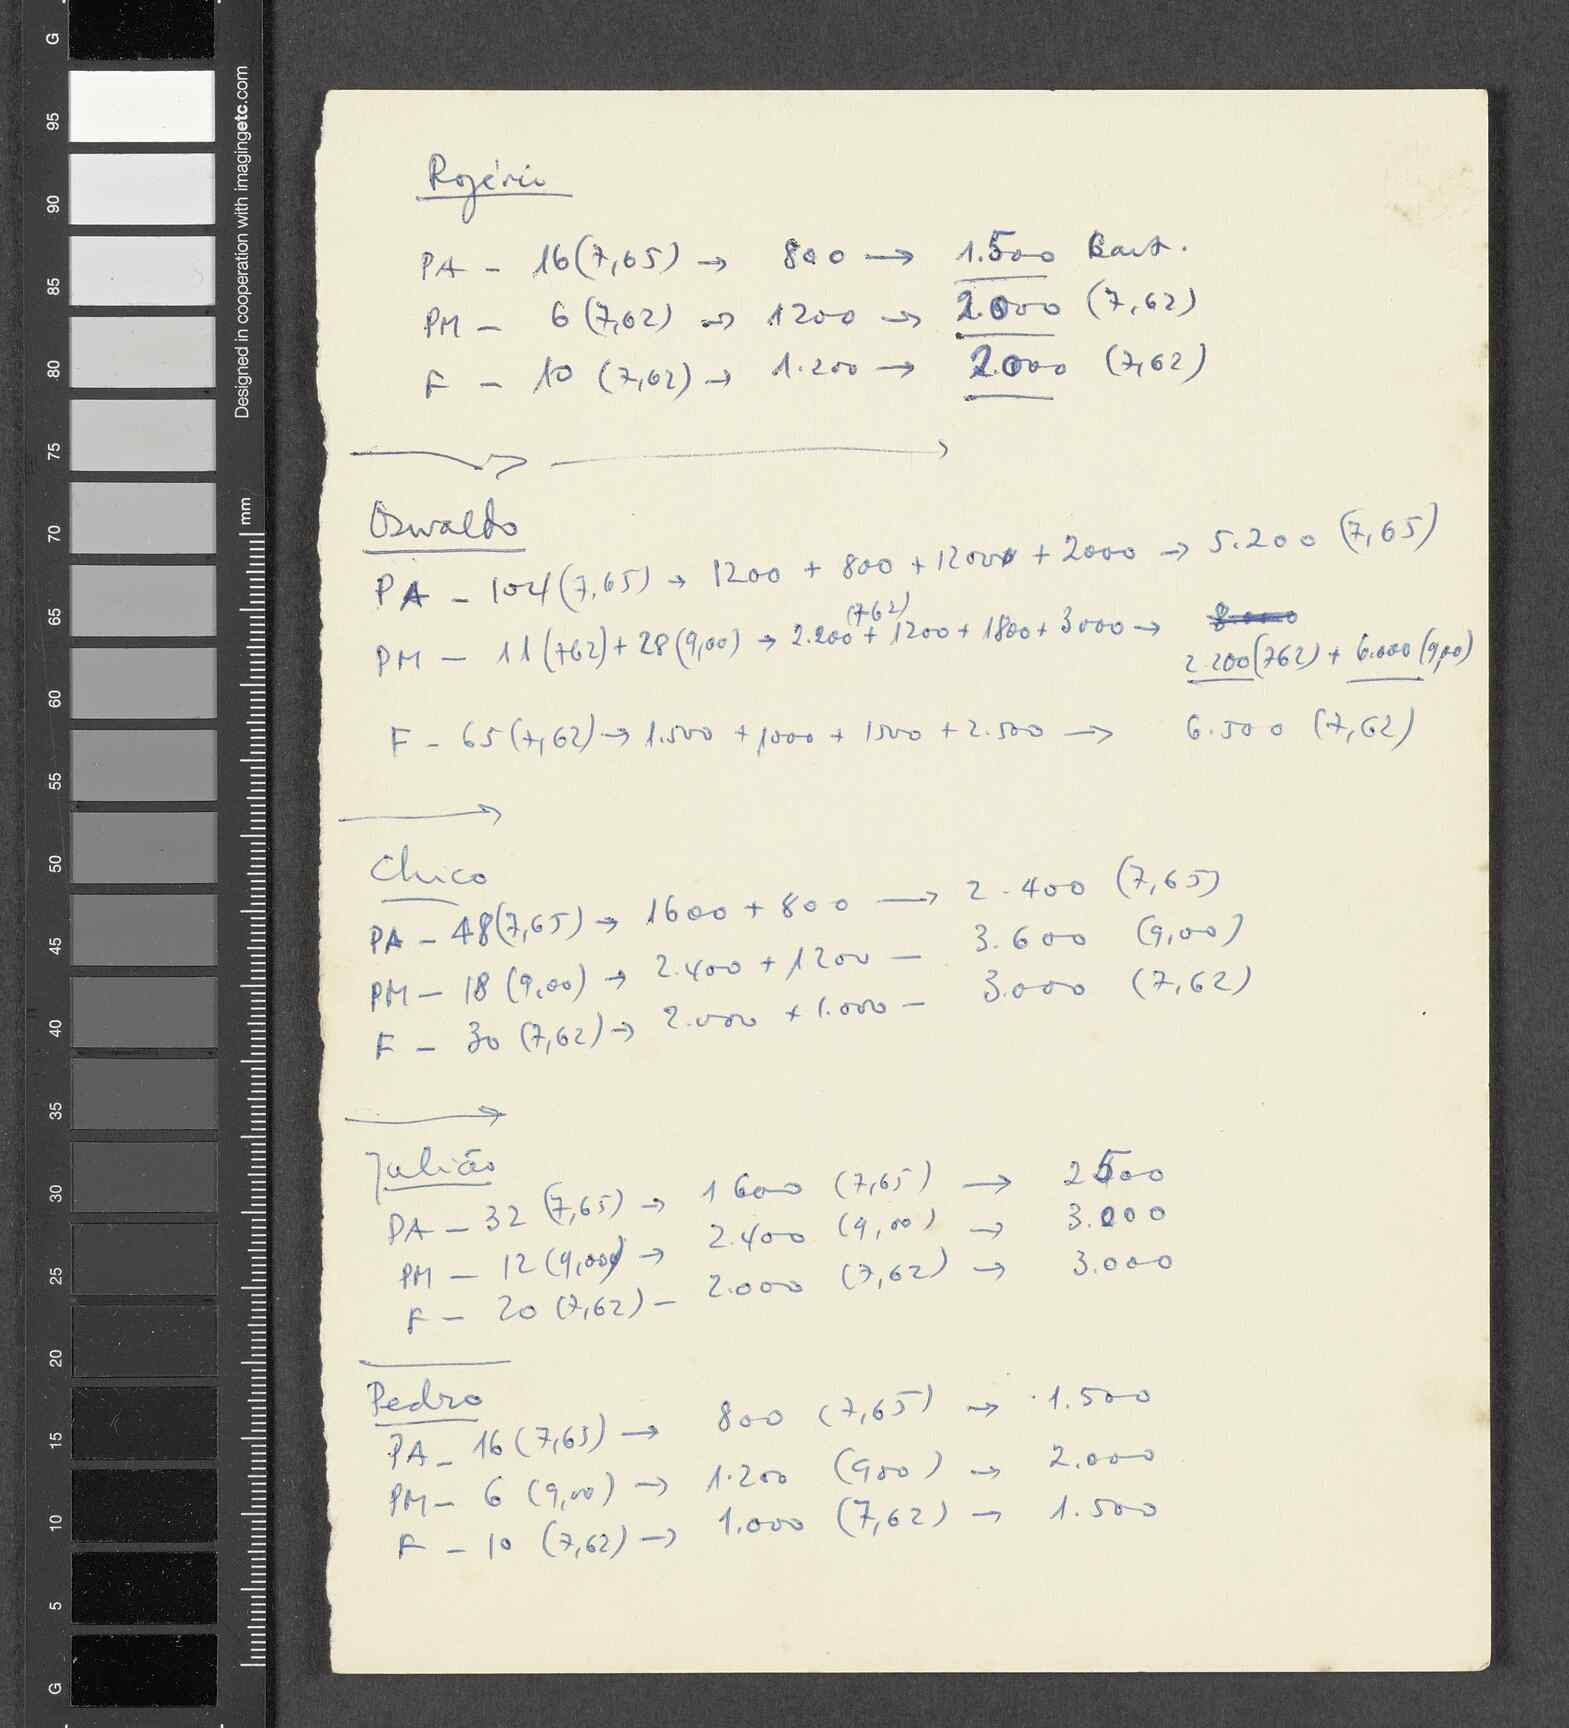 Rogério
PA - 16 (7,65) → 800 → 1.500 Cart.
PM - 6 (7,62) → 1200 → 2.000 (7,62)
F - 10 (7,62) → 1.200 → 2.000 (7,62)
Oswaldo
PA - 104 (7,65) → 1200 + 800 + 1200 + 2000 → 5.200 (7,65)
(762)
PM - 11 (762) + 28 (9,00) → 2.200 + 1200 + 1800 + 3000 → 8.000
2.200 (762) + 6.000 (9,00)
F - 65 (7,62) → 1.500 + 1000 + 1500 + 2.500 → 6.500 (7,62)
Chico
PA - 48 (7,65) → 1600 + 800 → 2.400 (7,65)
PM - 18 (9,00) → 2.400 + 1200 - 3.600 (9,00)
F - 30 (7,62) → 2.000 + 1.000 - 3.000 (7,62)
Julião
PA - 32 (7,65) → 1600 (7,65) → 2500
PM - 12 (9,00) → 2.400 (9,00) → 3.000
F - 20 (7,62) - 2.000 (7,62) → 3.000
Pedro
PA - 16 (7,65) → 800 (7,65) → 1.500
PM - 6 (9,00) → 1.200 (900) → 2.000
F - 10 (7,62) → 1.000 (7,62) → 1.500
Designed in cooperation with imagingetc.com
mm
G
95
90
85
80
75
70
65
60
55
50
45
40
35
30
25
20
15
10
5
G